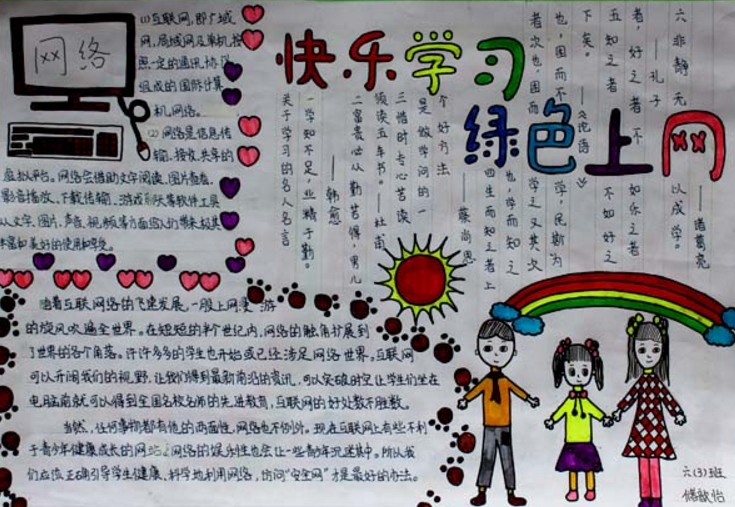 网络
(1)互联网,即广域
网,局域网及单机按
照一定的通讯协议
组成的国际计算
机网络。
(2)网络是信息传
输、接收、共享的
虚拟平台。网络会借助文字阅读、图片查看、
影音播放、下载传输、游戏聊天等软件工具
从文字、图片、声音、视频等方面给人们带来极其
丰富和美好的使用和享受。
快乐学习
绿色上网
关于学习的名人名言
一学知不足,业精于勤。
——韩愈
二富贵必从勤苦得,男儿
须读五车书。——杜甫
三惜时、专心、苦读
是做学问的一
个好方法
——蔡尚思
四生而知之者上
也,学而知之
者次也,困而
学之又其次
也,困而不
学,民斯为
下矣。——《论语》
五知之者不如好之
者,好之者不
如乐之者
——孔子
六非静无
以成学。
——诸葛亮
随着互联网络的飞速发展,一股上网漫游
的旋风吹遍全世界。在短短的半个世纪内,网络的触角扩展到
了世界的各个角落。许许多多的学生也开始或已经涉足网络世界。互联网
可以开阔我们的视野,让我们得到最新前沿的资讯,可以突破时空让学生们坐在
电脑前就可以得到全国名校名师的先进教育,互联网的好处数不胜数。
当然,任何事物都有他的两面性,网络也不例外。现在互联网上有些不利
于青少年健康成长的网站,网络的娱乐性也会让一些青少年沉迷其中。所以我
们应该正确引导学生健康、科学地利用网络,访问“安全网”才是最好的办法。
六(3)班